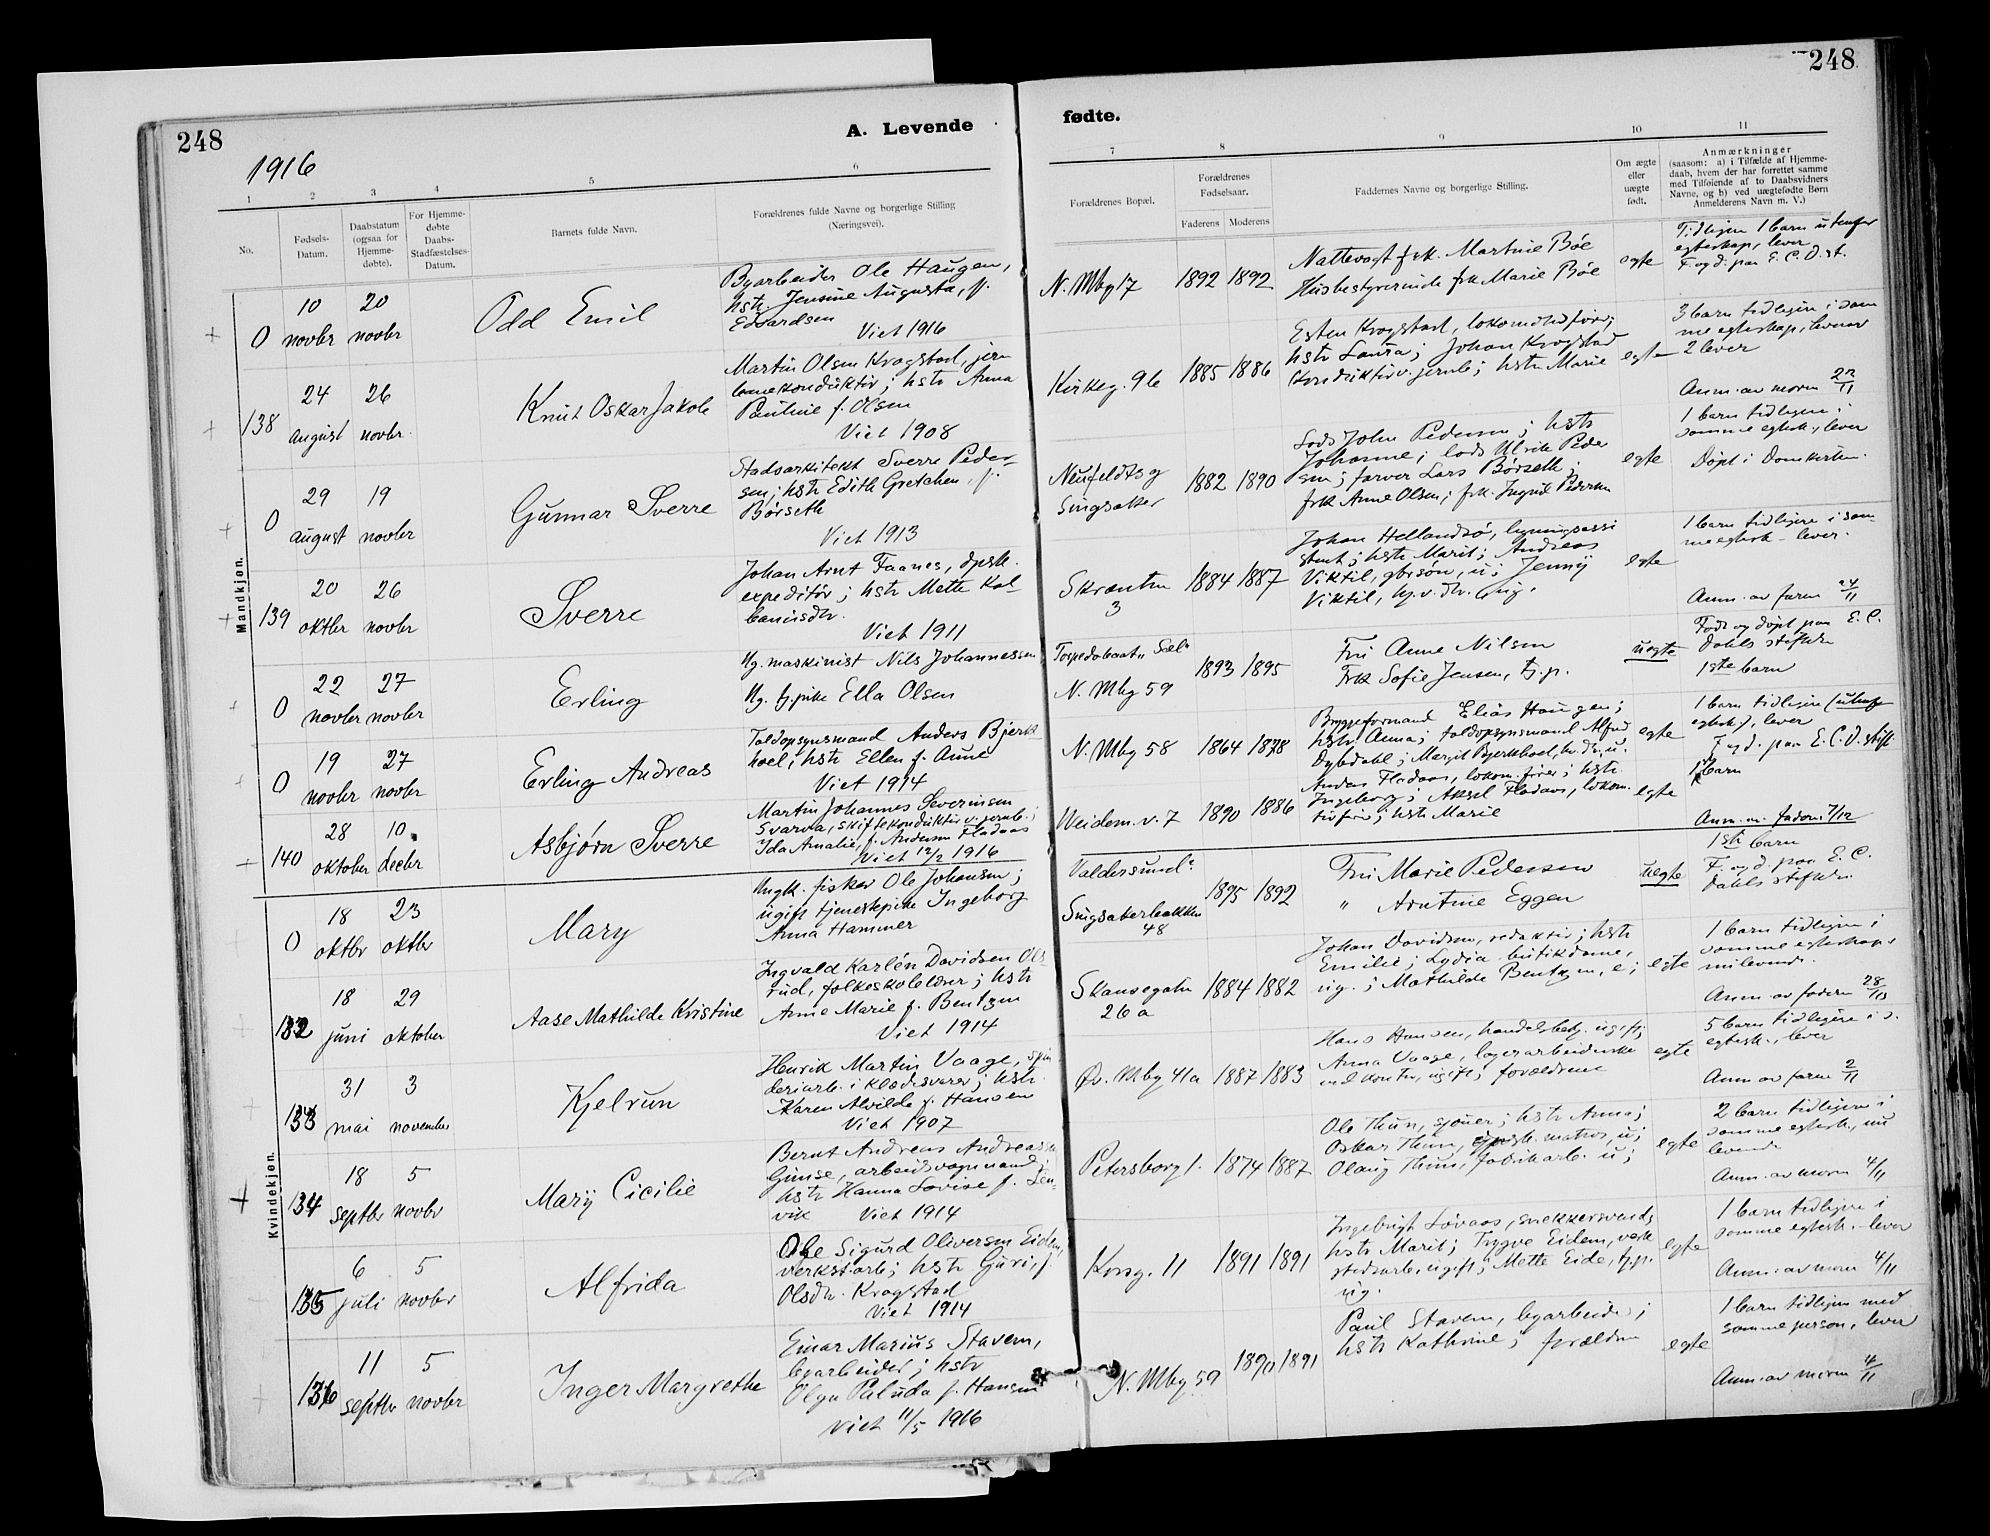 248
A. Levende
fødte.
248
1916
1 2 3 4 5 6 7 8 9 10 11
No.
Fødsels-
Datum.
Daabsdatum
(ogsaa for
Hjemme-
døbte).
For Hjemme-
døbte
Daabs-
Stadfæstelses-
Datum.
Barnets fulde Navn.
Forældrenes fulde Navne og borgerlige Stilling
(Næringsvei).
Forældrenes Bopæl.
Forældrenes
Fødselsaar.
Faderens Moderens
Faddernes Navne og borgerlige Stilling.
Om ægte
eller
uægte
født.
Anmærkninger
(saasom: a) i Tilfælde af Hjemme-
daab, hvem der har forrettet samme
med Tilføiende af to Daabsvidners
Navne, og b) ved uægtefødte Børn
Anmelderens Navn m. V.)
Mandkjøn.
0
10 20
novbr novbr
Odd Emil
Byarbeider Ole Haugen,
hstr. Jensine Augusta, f.
Edvardsen
Viet 1916
N. Mbg 17
1892 1892
Nattevagt frk. Martine Bøe
Husbestyrerinde frk Marie Bøe
egte
Tidligere 1 barn utenfor
egteskap, lever
F. og d. paa E. C. D. st.
138
24 26
august novbr.
Knut Oskar Jakob
Martin Olsen Krogstad, jern
banekonduktør; hstr Anna
Pauline f. Olsen
Viet 1908
Kirkeg. 9b
1885 1886
Esten Krogstad, lokomotivfører;
hstr Laura; Johan Krogstad
konduktør v. jernb; hstr Marie
egte
3 barn tidligere i sam
me egteskap,
2 lever
Anm. av moren 22/11
0
29 19
august novbr
Gunnar Sverre
Stadsarkitekt Sverre Peder-
sen; hstr Edith Gretchen, f.
Børseth
Viet 1913
Neufeldtsg
Singsaker
1882 1890
Lods John Pedersen; hstr
Johanne; lods Ulrik Peder
sen; farver Lars Børseth;
frk Anne Olsen; frk. Ingrid Pedersen
egte
1 barn tidligere i
samme egtesk., lever
Døpt i Domkirken.
139
20 26
oktbr novbr
Sverre
Johan Arnt Faanes, dpsk.
expeditør; hstr Mette Kol-
banusdtr.
Viet 1911
Skrænten
3
1884 1887
Johan Hellandsø, assi
stent; hstr Marit; Andreas
Viktil, gbrsøn, u; Jenny
Viktil, hj. v. dtr. ug.
egte
1 barn tidligere i sam-
me egtesk - lever.
Anm. av faren 24/11
0
22 27
novbr novbr
Erling
Ug. maskinist Nils Johannessen
Ug. tj.pike Ella Olsen
Torpedobaat "Sæl"
N. Mbg 59
1893 1895
Fru Anne Nilsen
Frk Sofie Jensen, tj.p.
uegte
Født og døpt paa E. C.
Dahls stiftelse
1ste barn
0
19 27
novbr novbr
Erling Andreas
Toldopsynsmand Anders Bjerk
hoel; hstr Ellen f. Aune
Viet 1914
N. Mbg 58
1864 1878
Bryggeformand Elias Haugen;
hstr Anna; toldopsynsmand Alfred
Dybdahl; Margit Bjerkhoel, hv. dtr. u.
egte
1 barn tidligere (utenf
egtesk.), lever
F og d. paa E. C. D. stift
140
28 10.
oktober decbr
Asbjørn Sverre
Martin Johannes Severinsen
Svarva, skiftekonduktør v. jernb.;
Ida Amalie, f. Andersen Fladaas
Viet 12/2 1916
Weidem. v. 7
1890 1886
Anders Fladaas, lokom.fører; hstr
Ingeborg; Aksel Fladaas, lokom.
tivfører; hstr Marie
egte
1 barn
Anm. av faderen 7/12
Kvindekjøn.
0
18 23
oktbr oktbr
Mary
Ungk. fisker Ole Johansen;
ugift tjenestepike Ingeborg
Anna Hammer
Valdersund:
Singsakerbakken
48
1895 1892
Fru Marie Pedersen
" Arntine Eggen
uegte
1ste barn
F. og d. paa E. C.
Dahls stiftelse
132
18 29
juni oktober
Aase Mathilde Kristine
Ingvald Karlén Davidsen Ols
rud, folkeskolelærer; hstr
Anne Marie f. Bentzen
Viet 1914
Skansegaten
26 a
1884 1882
Johan Davidsen, redaktør; hstr
Emilie; Lydia butikdame,
ug.; Mathilde Bentzen, e;
egte
1 barn tidligere i
samme egteskap,
nulevende.
Anm. av faderen 28/10
133
31 3
mai november
Kjelrun
Henrik Martin Vaage, spin
deriarb. i klædesvarer; hstr.
Karen Alvilde f. Hansen
Viet 1907
Øv. Mbg 41a
1887 1883
Hans Hansen, handelsbetj. ugift;
Anna Vaage, lagerarbeiderske
ved kontr, ugift; forældrene
egte
5 barn tidligere i s.
egtesk., lever
Anm. av faren 2/11
134
18 5
septbr novbr
Mary Cicilie
Bernt Andreas Andreassen
Gimse, arbeidsvognmand;
hstr Hanna Lovise f. Len-
vik Viet 1914
Petersborg f.
1874 1887
Ole Thun, sjouer; hstr Anna;
Oskar Thun, dpsk. matros, u;
Olaug Thun, fabrikarb. u;
egte
2 barn tidligere i
samme egtesk., nu
levende
Anm. av moren 4/11
135
6 5
juli novbr
Alfrida
Ole Sigurd Oliversen Eidem,
verkst.arb; hstr Guri, f.
Olsdtr. Krogstad
Viet 1914
Korsg. 11
1891 1891
Ingebrigt Løvaas, snekkersvend;
hstr Marit; Trygve Eidem, verk
stedsarb. ugift; Mette Eide, tj.p.
ug.
egte
1 barn tidligere i
samme egtesk. - lever
Anm. av moren 4/11
136
11 5
septbr novbr
Inger Margrethe
Einar Marius Stavem,
byarbeider; hstr
Olga Paluda f. Hansen
Viet 11/5 1916
N. Mbg 59
1890 1891
Paul Stavem, byarbeider;
hstr Kathrine; forældrene
egte
1 barn tidligere med
samme person, lever
Anm. av moren 4/11